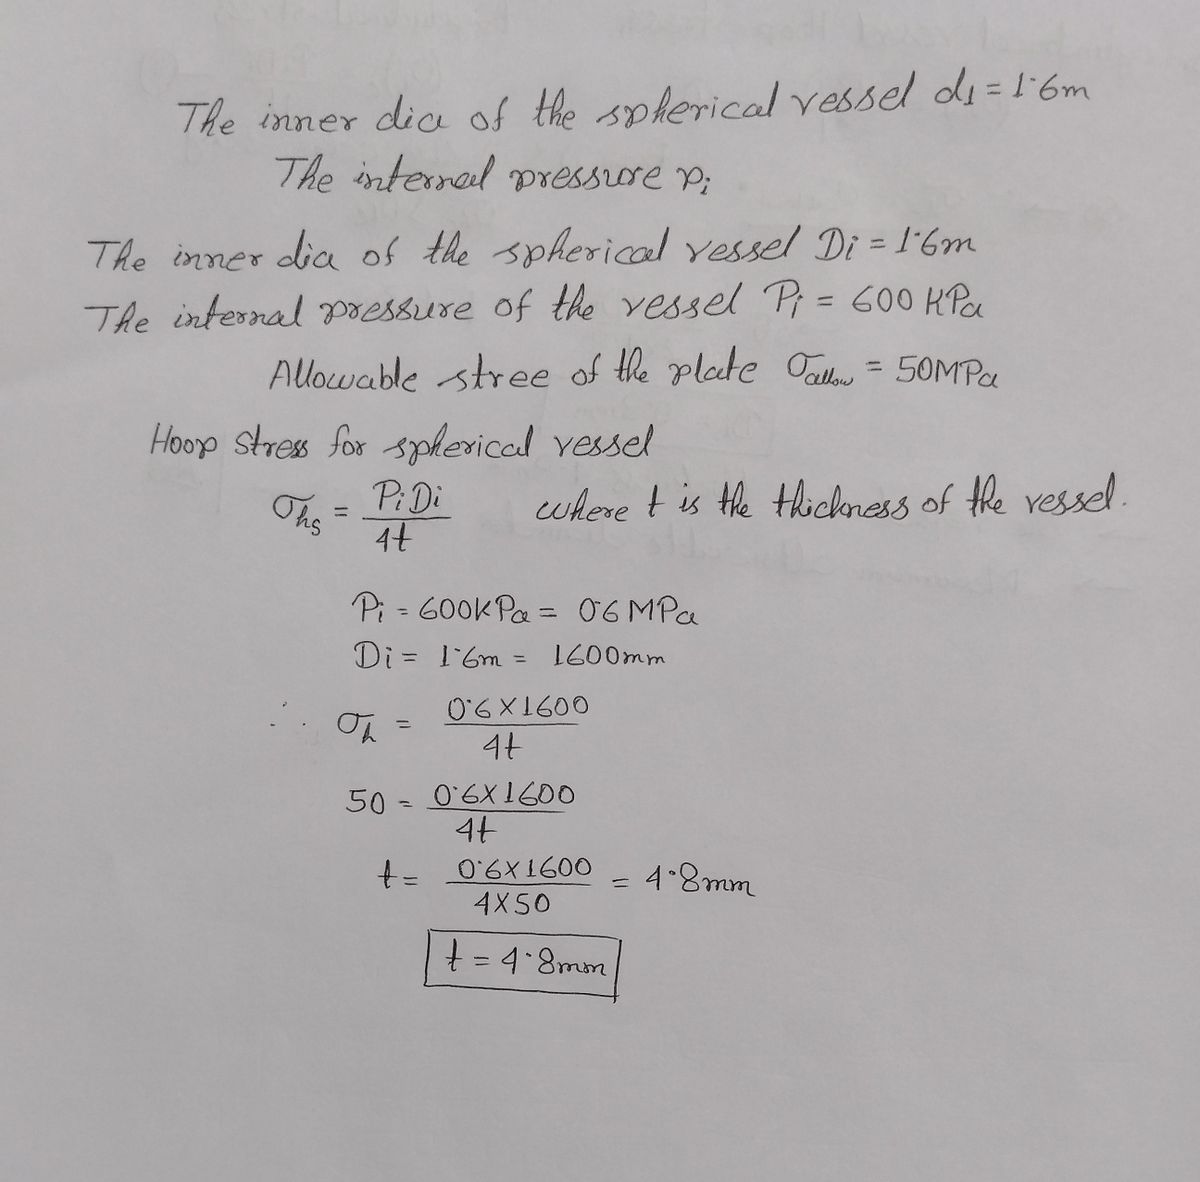 The inner dia of the spherical vessel d₁ = 1·6m
The internal pressure p;
The inner dia of the spherical vessel Di = 1·6m
The internal pressure of the vessel Pi = 600 KPa
Allowable stree of the plate σallow = 50MPa
Hoop Stress for spherical vessel
σhs = PiDi / 4t where t is the thickness of the vessel.
Pi = 600KPa = 0·6 MPa
Di = 1·6m = 1600mm
∴ σh = 0·6 X 1600 / 4t
50 = 0·6X1600 / 4t
t = 0·6X1600 / 4X50 = 4·8mm
t = 4·8mm